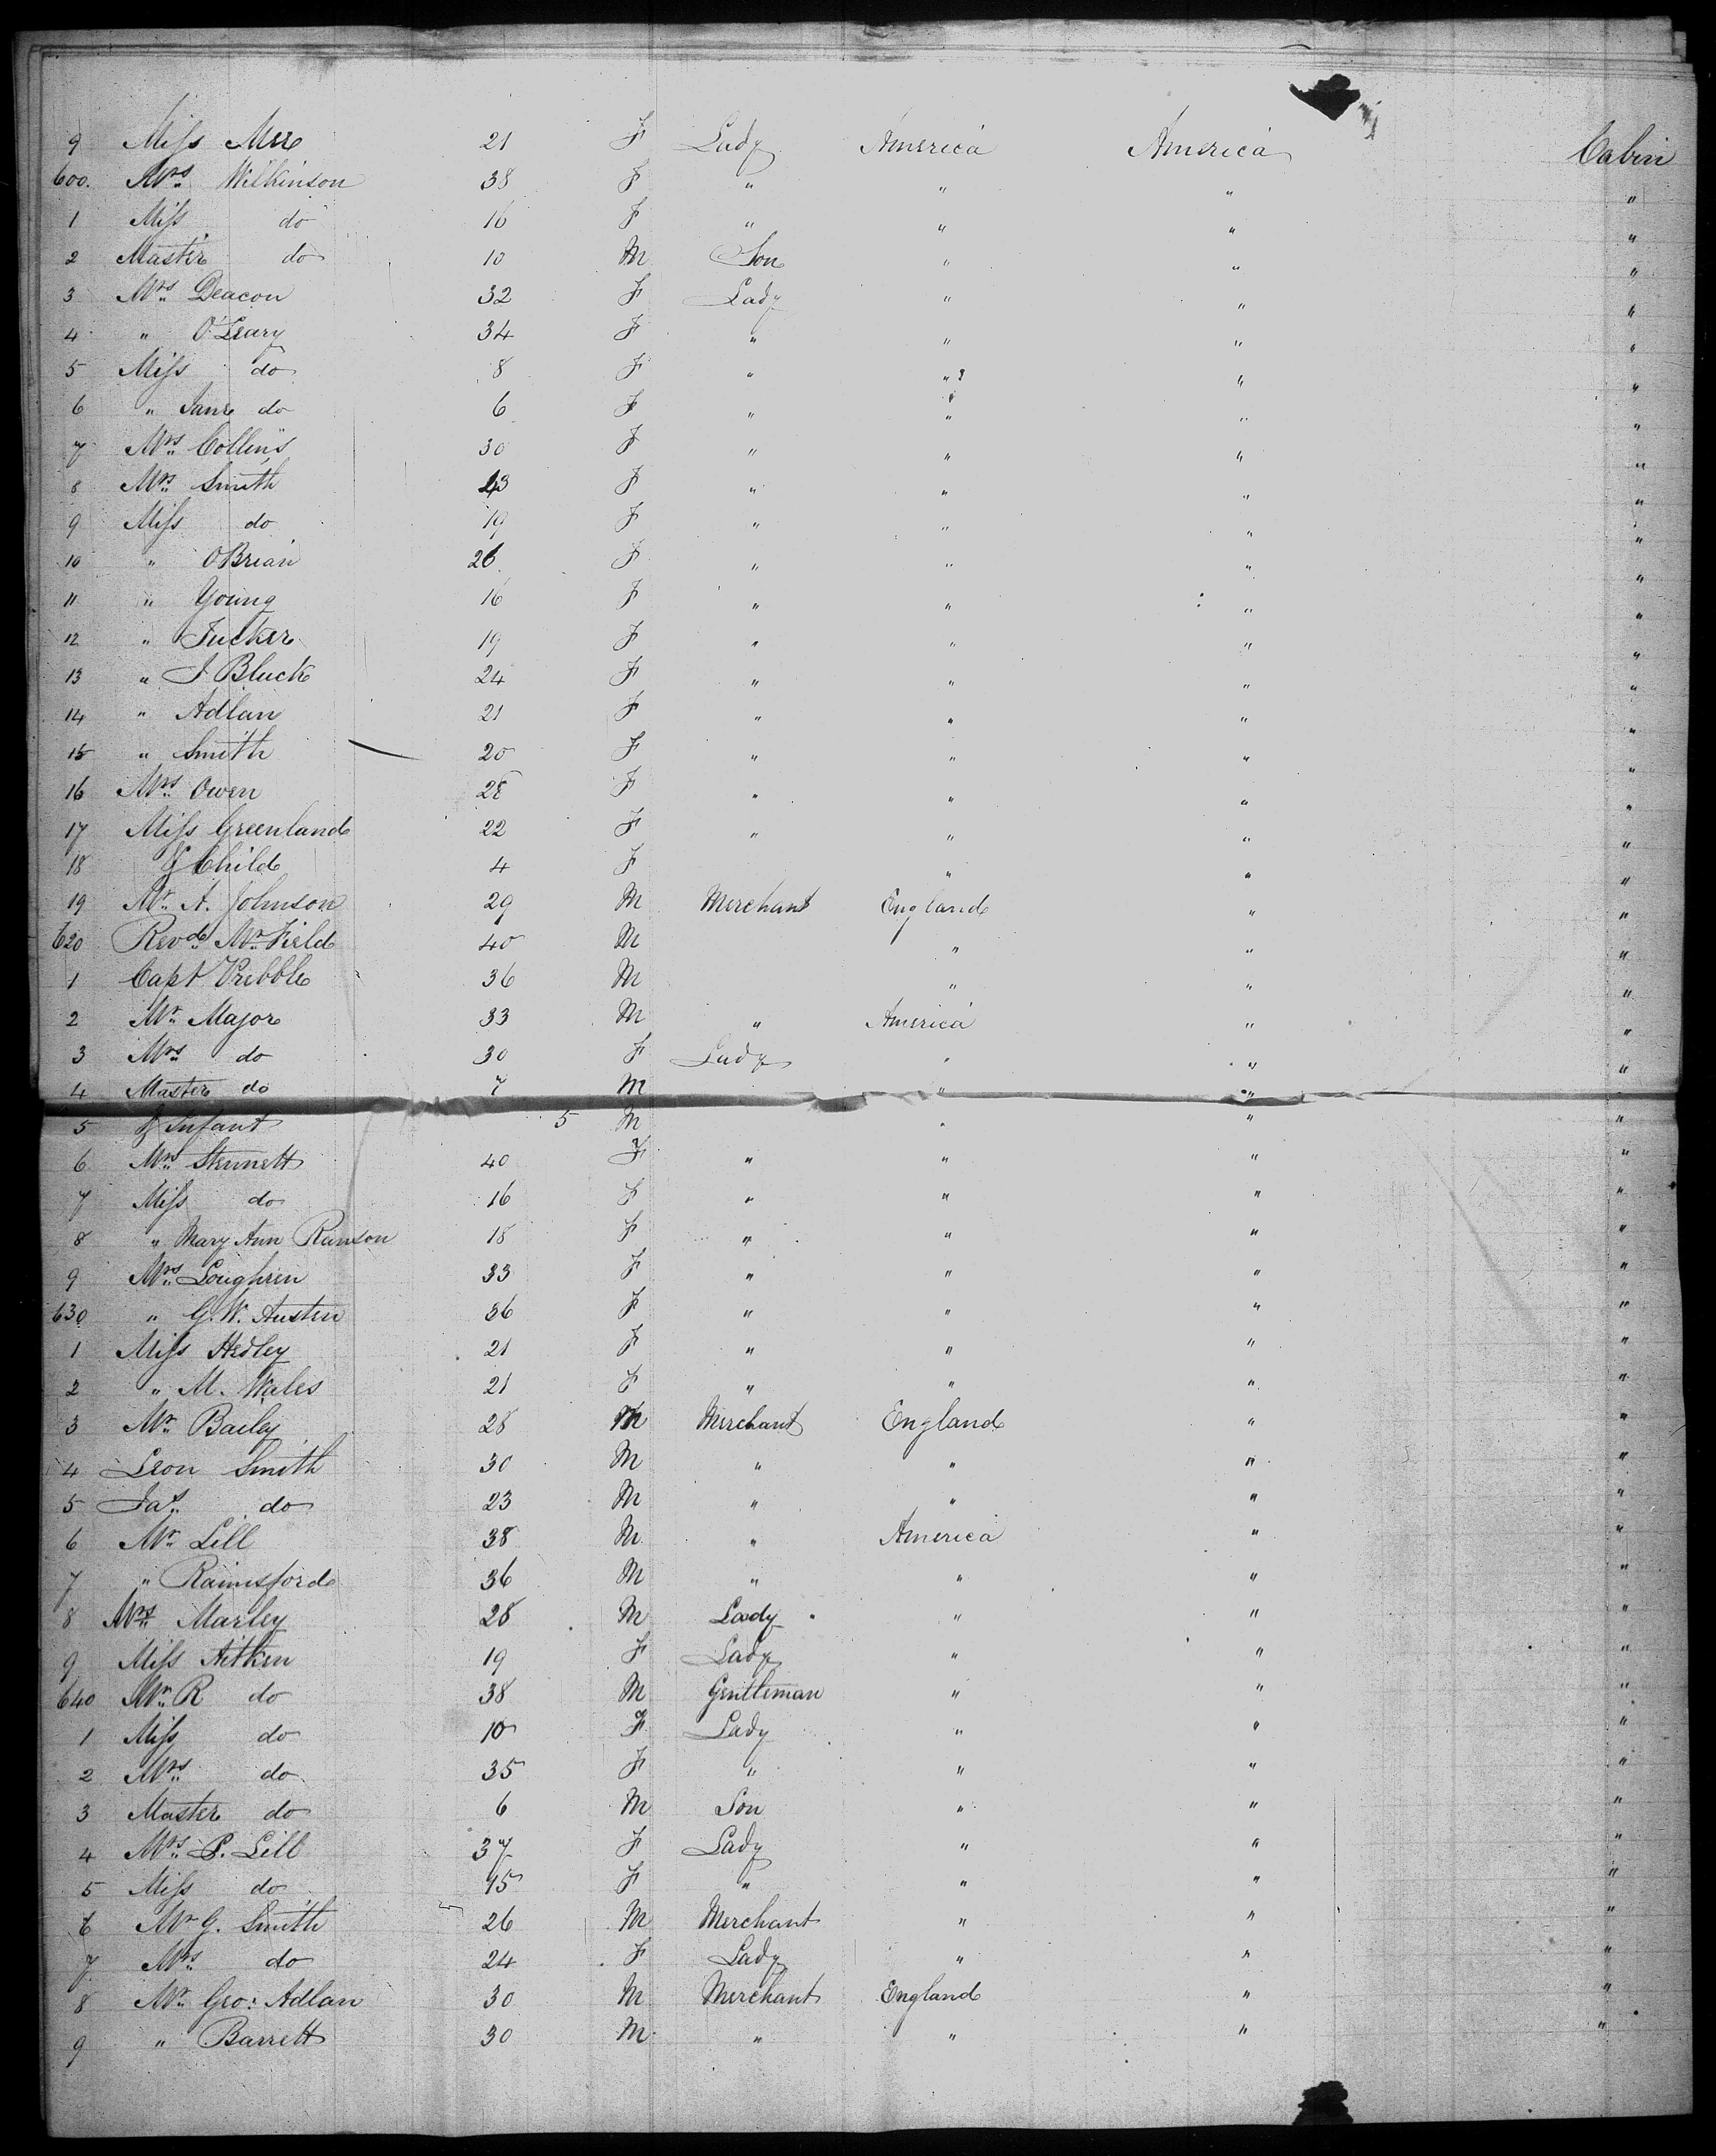 9 Miss Mee 21 F Lady America America Cabin
600. Mrs Wilkinson 38 F " " " "
1 Miss do 16 F " " " "
2 Master do 10 M Son " " "
3 Mrs Deacon 32 F Lady " " "
4 " O'Leary 34 F " " " "
5 Miss do 8 F " " " "
6 " Jane do 6 F " " " "
7 Mrs Collins 30 F " " " "
8 Mrs Smith 43 F " " " "
9 Miss do 19 F " " " "
10 " O'Brian 26 F " " " "
11 " Young 16 F " " " "
12 " Tucker 19 F " " " "
13 " J Bluck 24 F " " " "
14 " Adlan 21 F " " " "
15 " Smith 20 F " " " "
16 Mrs Owen 28 F " " " "
17 Miss Greenland 22 F " " " "
18 & Child 4 F " " "
19 Mr A. Johnson 29 M Merchant England " "
620 Revd Mr Field 40 M " " "
1 Capt Pribble 36 M " " "
2 Mr Major 33 M " America " "
3 Mrs do 30 F Lady " " "
4 Master do 7 M " " "
5 & Infant 5 M " " "
6 Mrs Stennett 40 F " " " "
7 Miss do 16 F " " " "
8 " Mary Ann Ranson 18 F " " " "
9 Mrs Loughren 33 F " " " "
630 " G. W. Austin 36 F " " " "
1 Miss Hedley 21 F " " " "
2 " M. Wales 21 F " " " "
3 Mr Bailey 28 M Merchant England " "
4 Leon Smith 30 M " " " "
5 Jas do 23 M " " " "
6 Mr Lill 38 M " America " "
7 " Rainsford 36 M " " " "
8 Mrs Marley 28 M Lady " " "
9 Miss Aitken 19 F Lady " " "
640 Mr R do 38 M Gentleman " " "
1 Miss do 10 F Lady " " "
2 Mrs do 35 F " " " "
3 Master do 6 M Son " " "
4 Mrs P. Lill 37 F Lady " " "
5 Miss do 15 F " " " "
6 Mr G. Smith 26 M Merchant " " "
7 Mrs do 24 F Lady " " "
8 Mr Geo: Adlan 30 M Merchant England " "
9 " Barrett 30 M " " " "